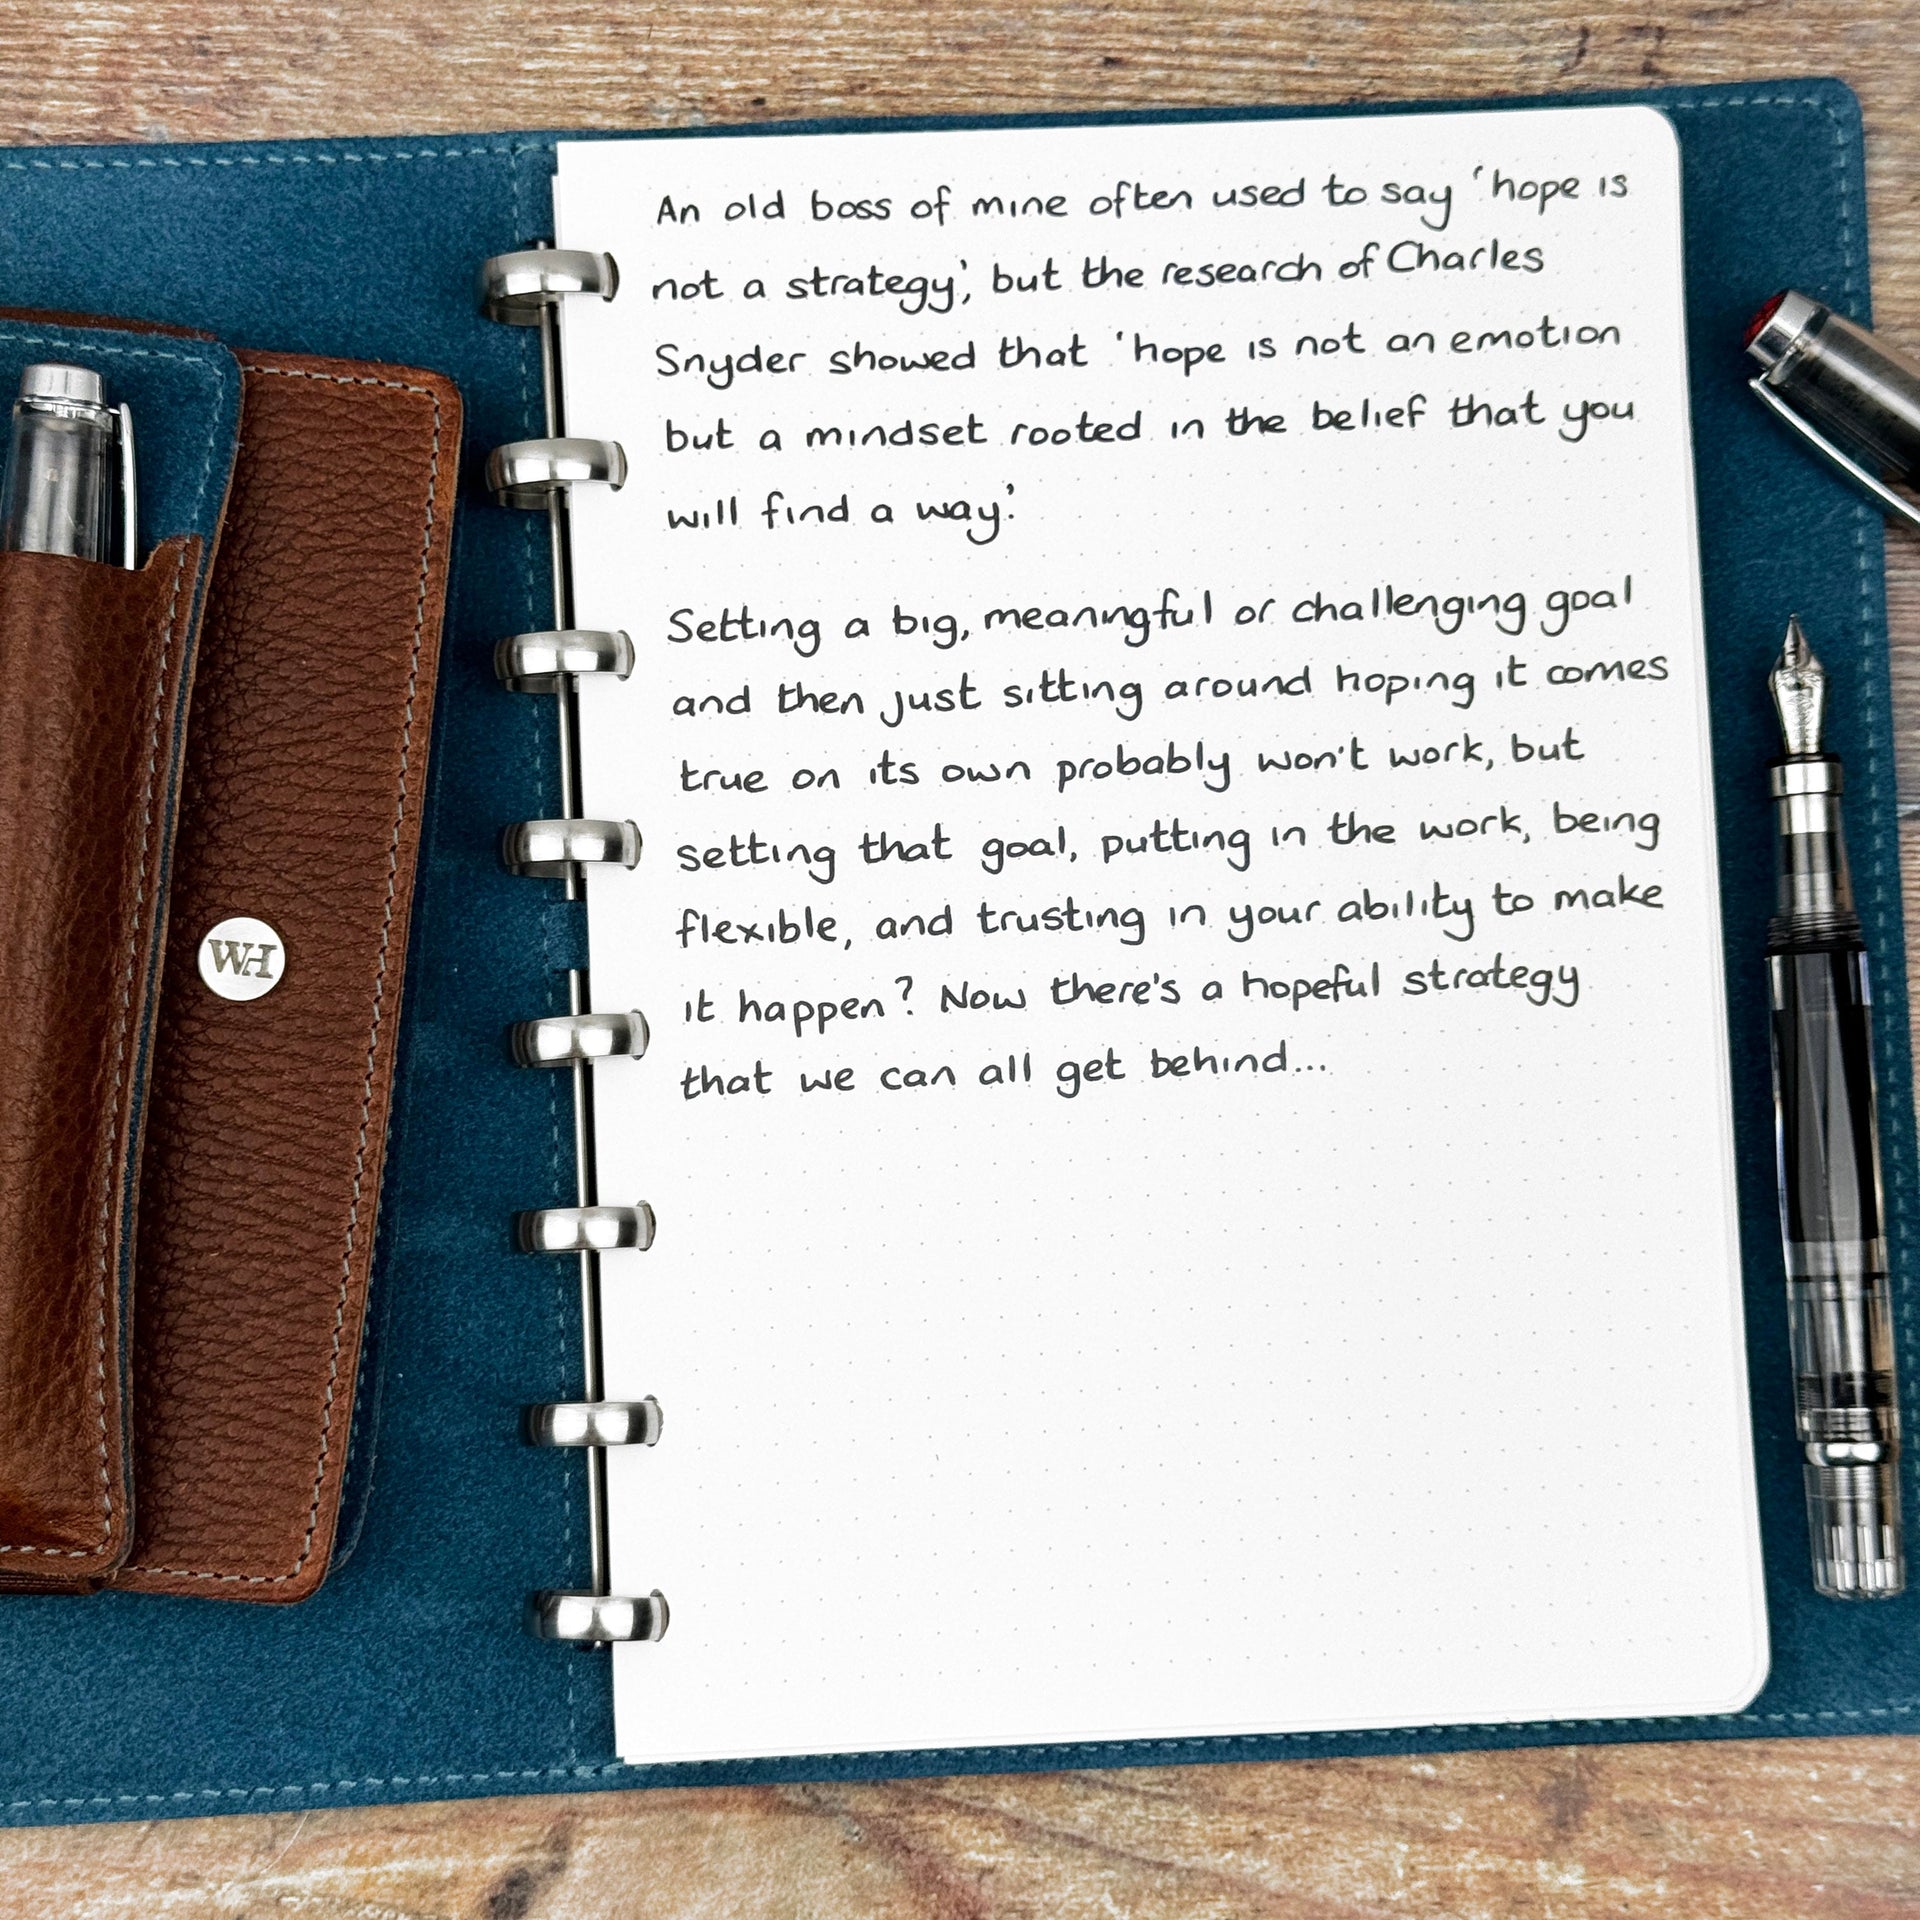 An old boss of mine often used to say 'hope is
not a strategy', but the research of Charles
Snyder showed that 'hope is not an emotion
but a mindset rooted in the belief that you
will find a way.'
Setting a big, meaningful or challenging goal
and then just sitting around hoping it comes
true on its own probably won't work, but
setting that goal, putting in the work, being
flexible, and trusting in your ability to make
it happen? Now there's a hopeful strategy
that we can all get behind...
WH